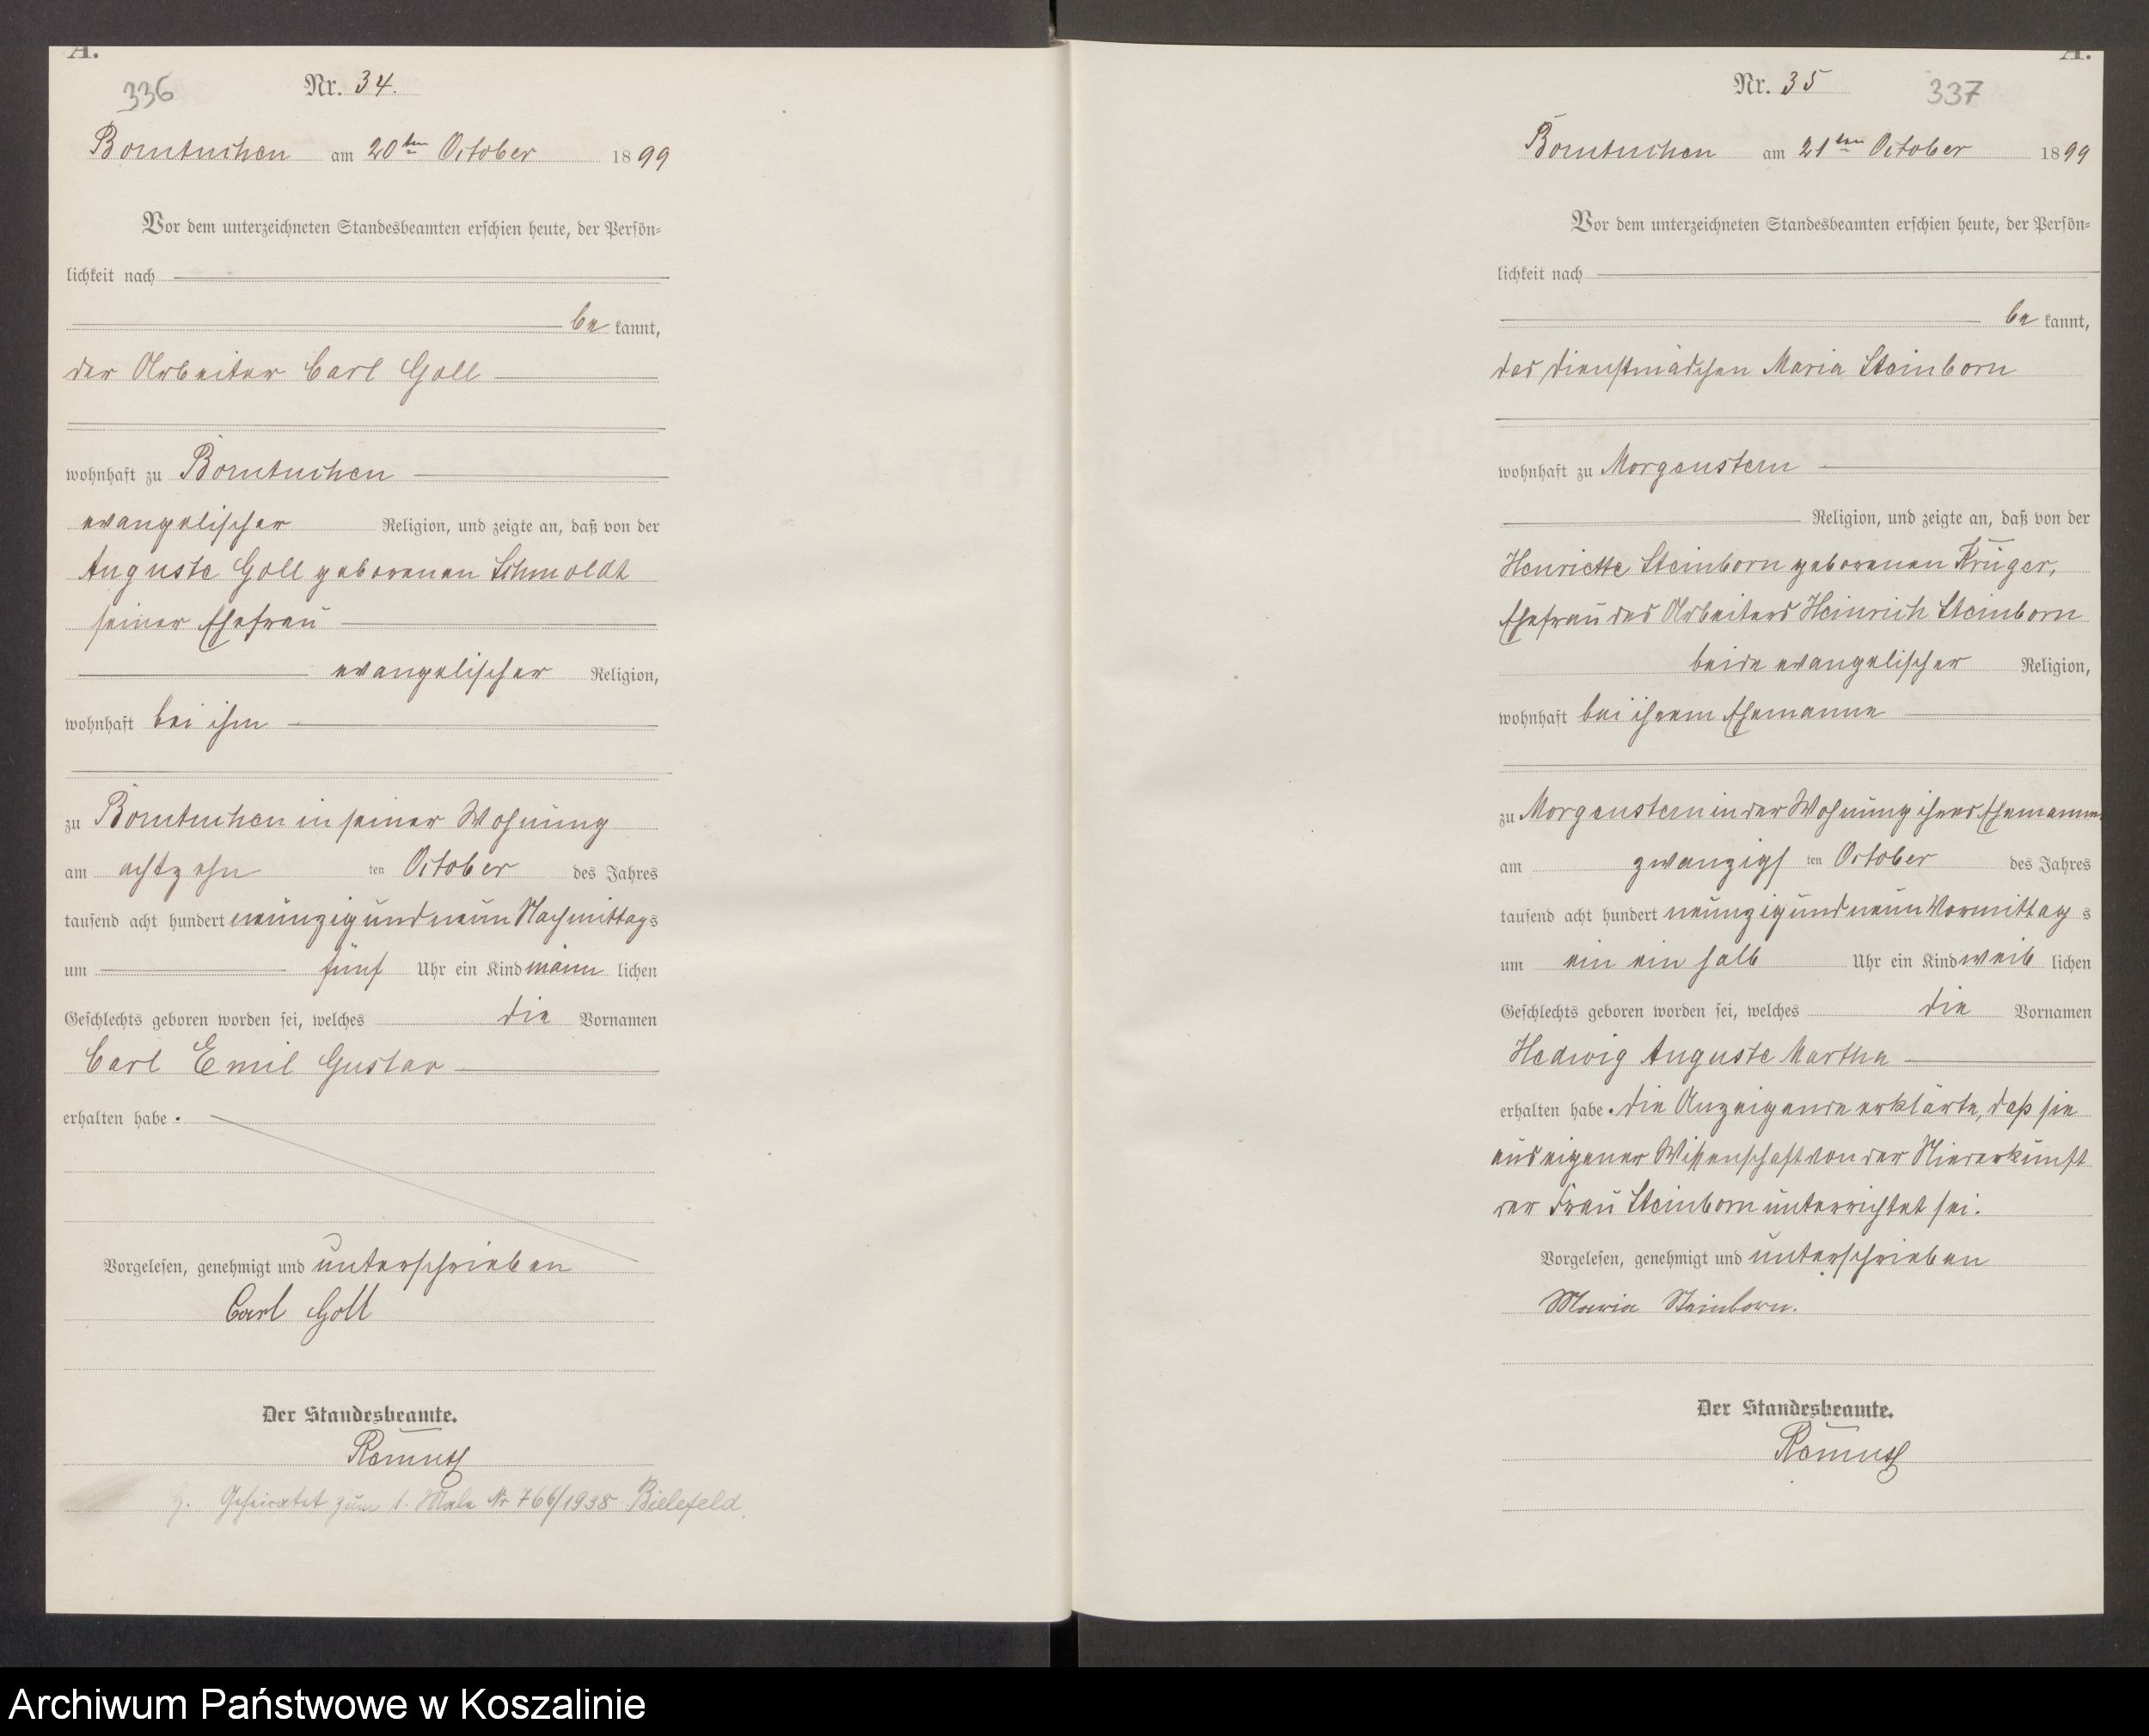 A.
336
Nr. 34.
Borntuchen am 20ten October 1899
Vor dem unterzeichneten Standesbeamten erschien heute, der Persön-
lichkeit nach
be kannt,
der Arbeiter Carl Goll
wohnhaft zu Borntuchen
evangelischer Religion, und zeigte an, daß von der
Auguste Goll geborenen Schmoldt
seiner Ehefrau
evangelischer Religion,
wohnhaft bei ihm
zu Borntuchen in seiner Wohnung
am achtzehn ten October des Jahres
tausend acht hundert neunzig und neun Nachmittags
um fünf Uhr ein Kind männlichen
Geschlechts geboren worden sei, welches die Vornamen
Carl Emil Gustav
erhalten habe.
Vorgelesen, genehmigt und unterschrieben
Carl Goll
Der Standesbeamte.
G. Geheiratet zum 1. Male Nr 766/1938 Bielefeld.
A.
Nr. 35
337
Borntuchen am 21ten October 1899
Vor dem unterzeichneten Standesbeamten erschien heute, der Persön-
lichkeit nach
be kannt,
das Dienstmädchen Maria Steinborn
wohnhaft zu Morgenstern
Religion, und zeigte an, daß von der
Henriette Steinborn geborenen Krüger,
Ehefrau des Arbeiters Heinrich Steinborn
beide evangelischer Religion,
wohnhaft bei ihrem Ehemanne
zu Morgenstern in der Wohnung ihres Ehemannes
am zwanzigs ten October des Jahres
tausend acht hundert neunzig und neun Vormittags
um ein ein halb Uhr ein Kind weiblichen
Geschlechts geboren worden sei, welches die Vornamen
Hedwig Auguste Martha
erhalten habe. Die Anzeigende erklärte, daß sie
aus eigener Wissenschaft von der Niederkunft
der Frau Steinborn unterrichtet sei.
Vorgelesen, genehmigt und unterschrieben
Maria Steinborn.
Der Standesbeamte.
Archiwum Państwowe w Koszalinie